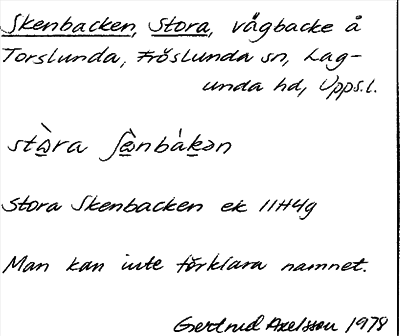 Skenbacken, Stora, vägbacke å
Torslunda, Fröslunda sn, Lag-
unda hd, Upps.l.
stòra ʃènbákən
Stora Skenbacken ek 11H4g
Man kan inte förklara namnet.
Gertrud Axelsson 1978